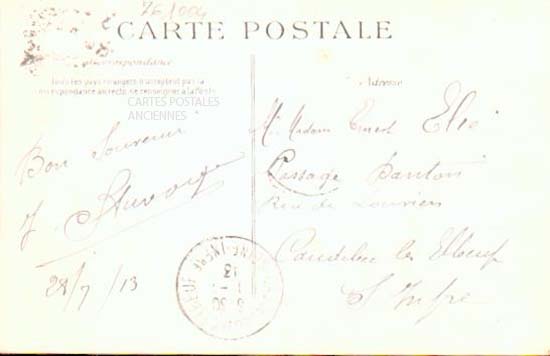 76/004
CARTE POSTALE
Correspondance
Tous les pays étrangers n'acceptent pas la
correspondance au recto, se renseigner à la Poste
CARTES POSTALES
ANCIENNES
Adresse
Bon Souvenir
28/7/13
Mr Madame Ernest
Passage Danton
Rue de Louviers
Caudebec les Elbeuf
S. Infre